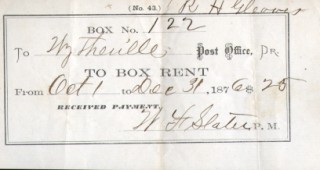 (No. 43.) R H Gleaves
BOX No. 122
To Wytheville, Post Office, Dr.
TO BOX RENT
From Oct 1 to Dec 31, 1876 $ 25
RECEIVED PAYMENT,
W H Slater P. M.